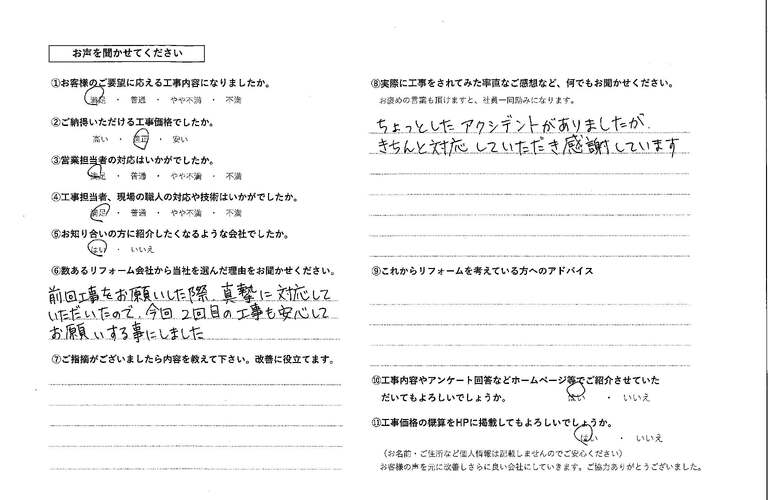 お声を聞かせてください
①お客様のご要望に応える工事内容になりましたか。
満足 ・ 普通 ・ やや不満 ・ 不満
②ご納得いただける工事価格でしたか。
高い ・ 適正 ・ 安い
③営業担当者の対応はいかがでしたか。
満足 ・ 普通 ・ やや不満 ・ 不満
④工事担当者、現場の職人の対応や技術はいかがでしたか。
満足 ・ 普通 ・ やや不満 ・ 不満
⑤お知り合いの方に紹介したくなるような会社でしたか。
はい ・ いいえ
⑥数あるリフォーム会社から当社を選んだ理由をお聞かせください。
前回工事をお願いした際、真摯に対応して
いただいたので、今回2回目の工事も安心して
お願いする事にしました
⑦ご指摘がございましたら内容を教えて下さい。改善に役立てます。
⑧実際に工事をされてみた率直なご感想など、何でもお聞かせください。
お褒めの言葉も頂けますと、社員一同励みになります。
ちょっとしたアクシデントがありましたが、
きちんと対応していただき感謝しています
⑨これからリフォームを考えている方へのアドバイス
⑩工事内容やアンケート回答などホームページ等でご紹介させていた
だいてもよろしいでしょうか。 はい ・ いいえ
⑪工事価格の概算をHPに掲載してもよろしいでしょうか。
はい ・ いいえ
（お名前・ご住所など個人情報は記載しませんのでご安心ください）
お客様の声を元に改善しさらに良い会社にしていきます。ご協力ありがとうございました。